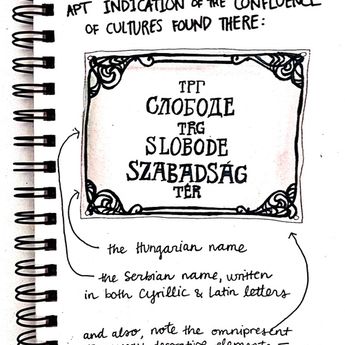 APT INDICATION of the CONFLUENCE
OF CULTURES FOUND THERE:
ТРГ
СЛОБОДЕ
TRG
SLOBODE
SZABADSÁG
TÉR
the Hungarian name
the Serbian name, written
in both Cyrillic & Latin letters
and also, note the omnipresent
decorative elements –